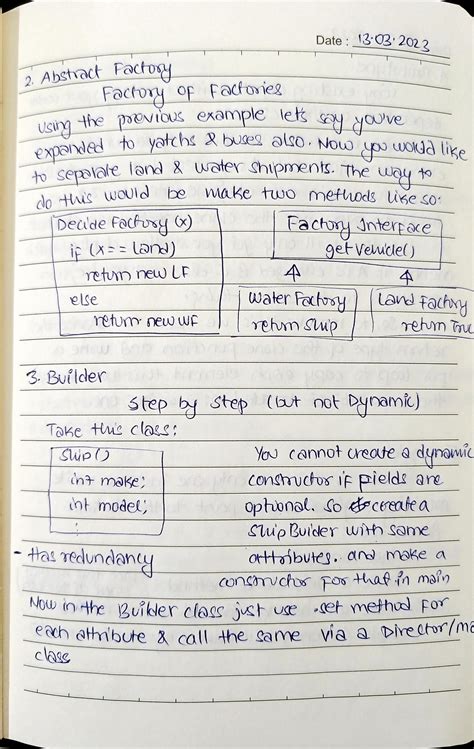 Date : 13.03.2023
2. Abstract Factory
Factory of Factories
Using the previous example let's say you've
expanded to yatchs & buses also. Now you would like
to separate land & water shipments. The way to
do this would be make two methods like so:
Decide Factory (x)
if (x == land)
return new LF
else
return new WF
Factory Interface
getVehicle()
Water Factory
return Ship
Land Factory
return
3. Builder
Step by step (but not Dynamic)
Take this class:
Ship()
int make;
int model;
:
- Has redundancy
You cannot create a dynamic
constructor if fields are
optional. so create a
ShipBuider with same
attributes. and make a
constructor for that in main
Now in the Builder class just use .set method for
each attribute & call the same via a Director/
class